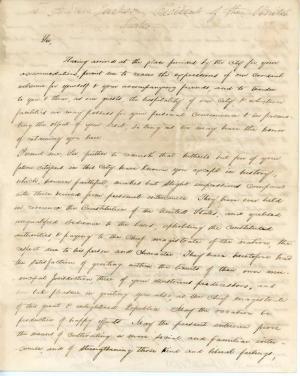 To Andrew Jackson President of the United
States
Sir,
Having arrived at the place provided by the City for your
accommodation, permit me to renew the expressions of our
esteem for yourself & your accompanying friends, and to tender
to you & them, as our guests the hospitality of our City & whatever
facilities we may possess for your personal Convenience & in promo-
ting the object of your visit, so long as we may have the honor
of retaining you here.
Permit me, Sir further to remark that hitherto but few of your
fellow citizens in this City have known you except in history,
which, however faithful, makes but slight impressions compared
with those derived from personal intercourse. They have ever held
in reverence the Constitution of the United States, and yielded
unqualified obedience to the laws, upholding the Constituted
authorities & paying to the Chief magistrate of the nation, the
respect due to his person and character. They have heretofore had
the satisfaction of greeting within the limits of their own
municipal jurisdiction three of your illustrious predecessors, and
take pleasure in greeting you also, as the Chief magistrate
of this great & enlightened Republic. May the occasion be
productive of happy effects. May the present interview prove
the means of cultivating a more personal and familiar inter-
course and of strengthening those kind and liberal feelings,